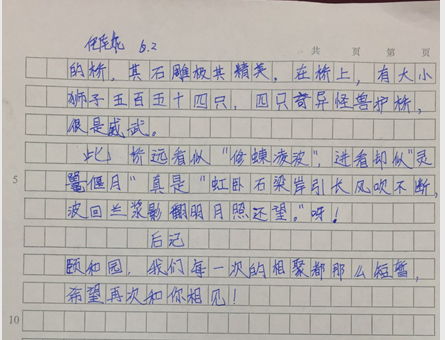 6.2
共 页 第 页
的桥,其石雕极其精美,在桥上,有大小
狮子五百五十四只,四只奇异怪兽护桥,
很是威武。
此 桥远看似“修蝀凌波”,进看却似“灵
鼍偃月”真是“虹卧石梁岸引长风吹不断,
5
波回兰浆影翻明月照还望。”呀!
后记
颐和园,我们每一次的相聚都那么短暂,
希望再次和你相见!
10